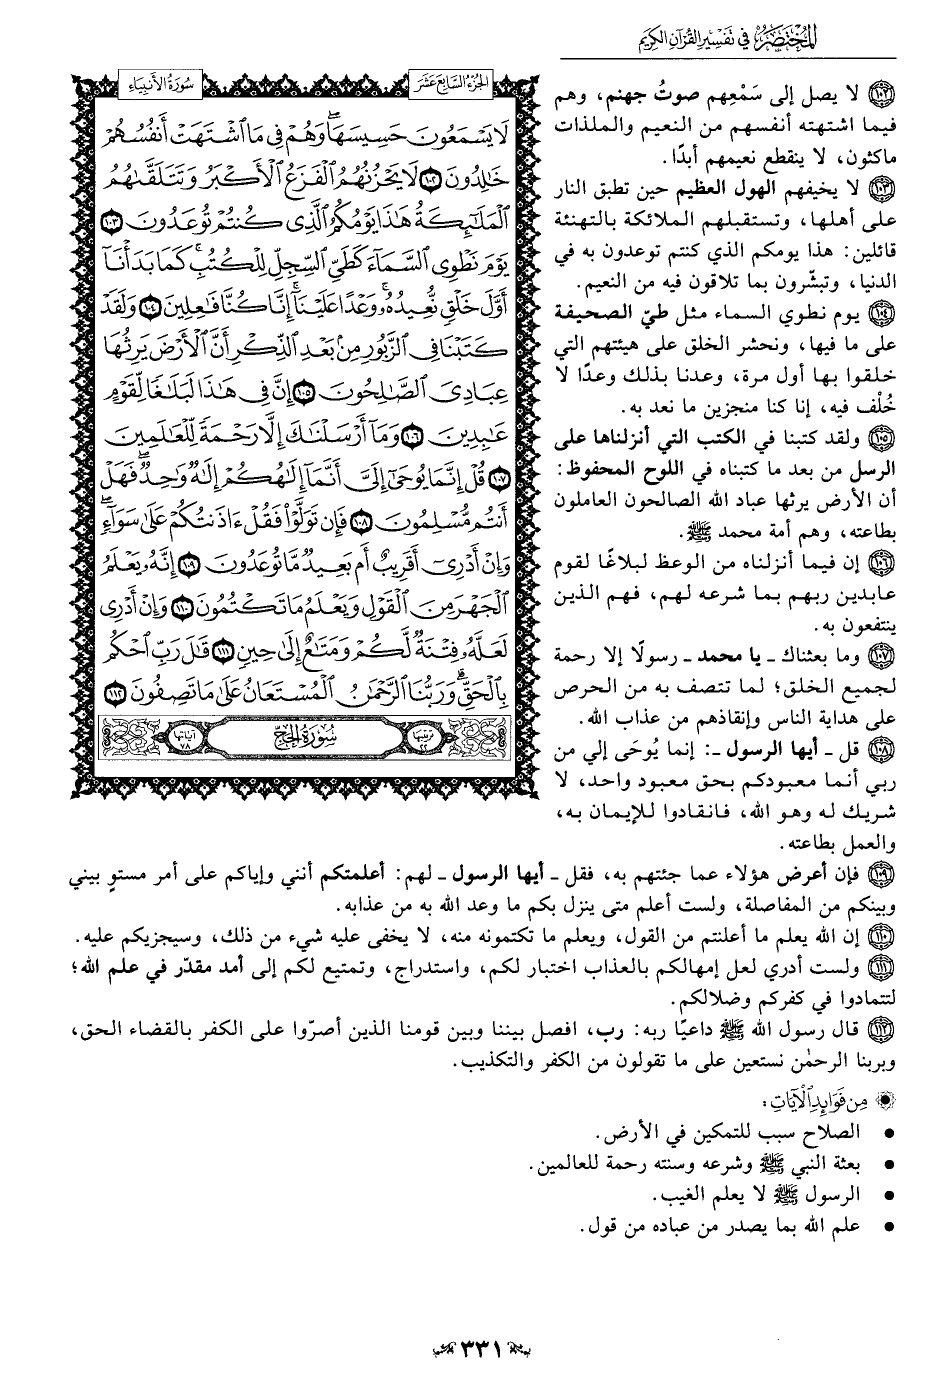 المختصر في تفسير القرآن الكريم
الجزء السابع عشر
سورة الأنبياء
لَا يَسْمَعُونَ حَسِيسَهَا ۖ وَهُمْ فِي مَا ٱشْتَهَتْ أَنفُسُهُمْ
خَٰلِدُونَ ١٠٢ لَا يَحْزُنُهُمُ ٱلْفَزَعُ ٱلْأَكْبَرُ وَتَتَلَقَّىٰهُمُ
ٱلْمَلَٰٓئِكَةُ هَٰذَا يَوْمُكُمُ ٱلَّذِي كُنتُمْ تُوعَدُونَ ١٠٣
يَوْمَ نَطْوِي ٱلسَّمَآءَ كَطَيِّ ٱلسِّجِلِّ لِلْكُتُبِ ۚ كَمَا بَدَأْنَآ
أَوَّلَ خَلْقٍ نُّعِيدُهُۥ ۚ وَعْدًا عَلَيْنَآ ۚ إِنَّا كُنَّا فَٰعِلِينَ ١٠٤ وَلَقَدْ
كَتَبْنَا فِي ٱلزَّبُورِ مِنۢ بَعْدِ ٱلذِّكْرِ أَنَّ ٱلْأَرْضَ يَرِثُهَا
عِبَادِيَ ٱلصَّٰلِحُونَ ١٠٥ إِنَّ فِي هَٰذَا لَبَلَٰغًا لِّقَوْمٍ
عَٰبِدِينَ ١٠٦ وَمَآ أَرْسَلْنَٰكَ إِلَّا رَحْمَةً لِّلْعَٰلَمِينَ
١٠٧ قُلْ إِنَّمَا يُوحَىٰٓ إِلَيَّ أَنَّمَآ إِلَٰهُكُمْ إِلَٰهٌ وَٰحِدٌ ۖ فَهَلْ
أَنتُم مُّسْلِمُونَ ١٠٨ فَإِن تَوَلَّوْا۟ فَقُلْ ءَاذَنتُكُمْ عَلَىٰ سَوَآءٍ ۖ
وَإِنْ أَدْرِيٓ أَقَرِيبٌ أَم بَعِيدٌ مَّا تُوعَدُونَ ١٠٩ إِنَّهُۥ يَعْلَمُ
ٱلْجَهْرَ مِنَ ٱلْقَوْلِ وَيَعْلَمُ مَا تَكْتُمُونَ ١١٠ وَإِنْ أَدْرِي
لَعَلَّهُۥ فِتْنَةٌ لَّكُمْ وَمَتَٰعٌ إِلَىٰ حِينٍ ١١١ قَٰلَ رَبِّ ٱحْكُم
بِٱلْحَقِّ ۗ وَرَبُّنَا ٱلرَّحْمَٰنُ ٱلْمُسْتَعَانُ عَلَىٰ مَا تَصِفُونَ ١١٢
ترتيبها ٢٢ سورة الحج آياتها ٧٨
١٠٢ لا يصل إلى سَمْعِهم صوتُ جهنم، وهم
فيما اشتهته أنفسهم من النعيم والملذات
ماكثون، لا ينقطع نعيمهم أبدًا.
١٠٣ لا يخيفهم الهول العظيم حين تطبق النار
على أهلها، وتستقبلهم الملائكة بالتهنئة
قائلين: هذا يومكم الذي كنتم توعدون به في
الدنيا، وتبشّرون بما تلاقون فيه من النعيم.
١٠٤ يوم نطوي السماء مثل طيّ الصحيفة
على ما فيها، ونحشر الخلق على هيئتهم التي
خلقوا بها أول مرة، وعدنا بذلك وعدًا لا
خُلْف فيه، إنا كنا منجزين ما نعد به.
١٠٥ ولقد كتبنا في الكتب التي أنزلناها على
الرسل من بعد ما كتبناه في اللوح المحفوظ:
أن الأرض يرثها عباد الله الصالحون العاملون
بطاعته، وهم أمة محمد ﷺ.
١٠٦ إن فيما أنزلناه من الوعظ لبلاغًا لقوم
عابدين ربهم بما شرعه لهم، فهم الذين
ينتفعون به.
١٠٧ وما بعثناك ـ يا محمد ـ رسولًا إلا رحمة
لجميع الخلق؛ لما تتصف به من الحرص
على هداية الناس وإنقاذهم من عذاب الله.
١٠٨ قل ـ أيها الرسول ـ: إنما يُوحَى إلي من
ربي أنما معبودكم بحق معبود واحد، لا
شريك له وهو الله، فانقادوا للإيمان به،
والعمل بطاعته.
١٠٩ فإن أعرض هؤلاء عما جئتهم به، فقل ـ أيها الرسول ـ لهم: أعلمتكم أنني وإياكم على أمر مستوٍ بيني
وبينكم من المفاصلة، ولست أعلم متى ينزل بكم ما وعد الله به من عذابه.
١١٠ إن الله يعلم ما أعلنتم من القول، ويعلم ما تكتمونه منه، لا يخفى عليه شيء من ذلك، وسيجزيكم عليه.
١١١ ولست أدري لعل إمهالكم بالعذاب اختبار لكم، واستدراج، وتمتيع لكم إلى أمد مقدّر في علم الله؛
لتتمادوا في كفركم وضلالكم.
١١٢ قال رسول الله ﷺ داعيًا ربه: رب، افصل بيننا وبين قومنا الذين أصرّوا على الكفر بالقضاء الحق،
وبربنا الرحمٰن نستعين على ما تقولون من الكفر والتكذيب.
من فوائد الآيات:
• الصلاح سبب للتمكين في الأرض.
• بعثة النبي ﷺ وشرعه وسنته رحمة للعالمين.
• الرسول ﷺ لا يعلم الغيب.
• علم الله بما يصدر من عباده من قول.
٣٣١